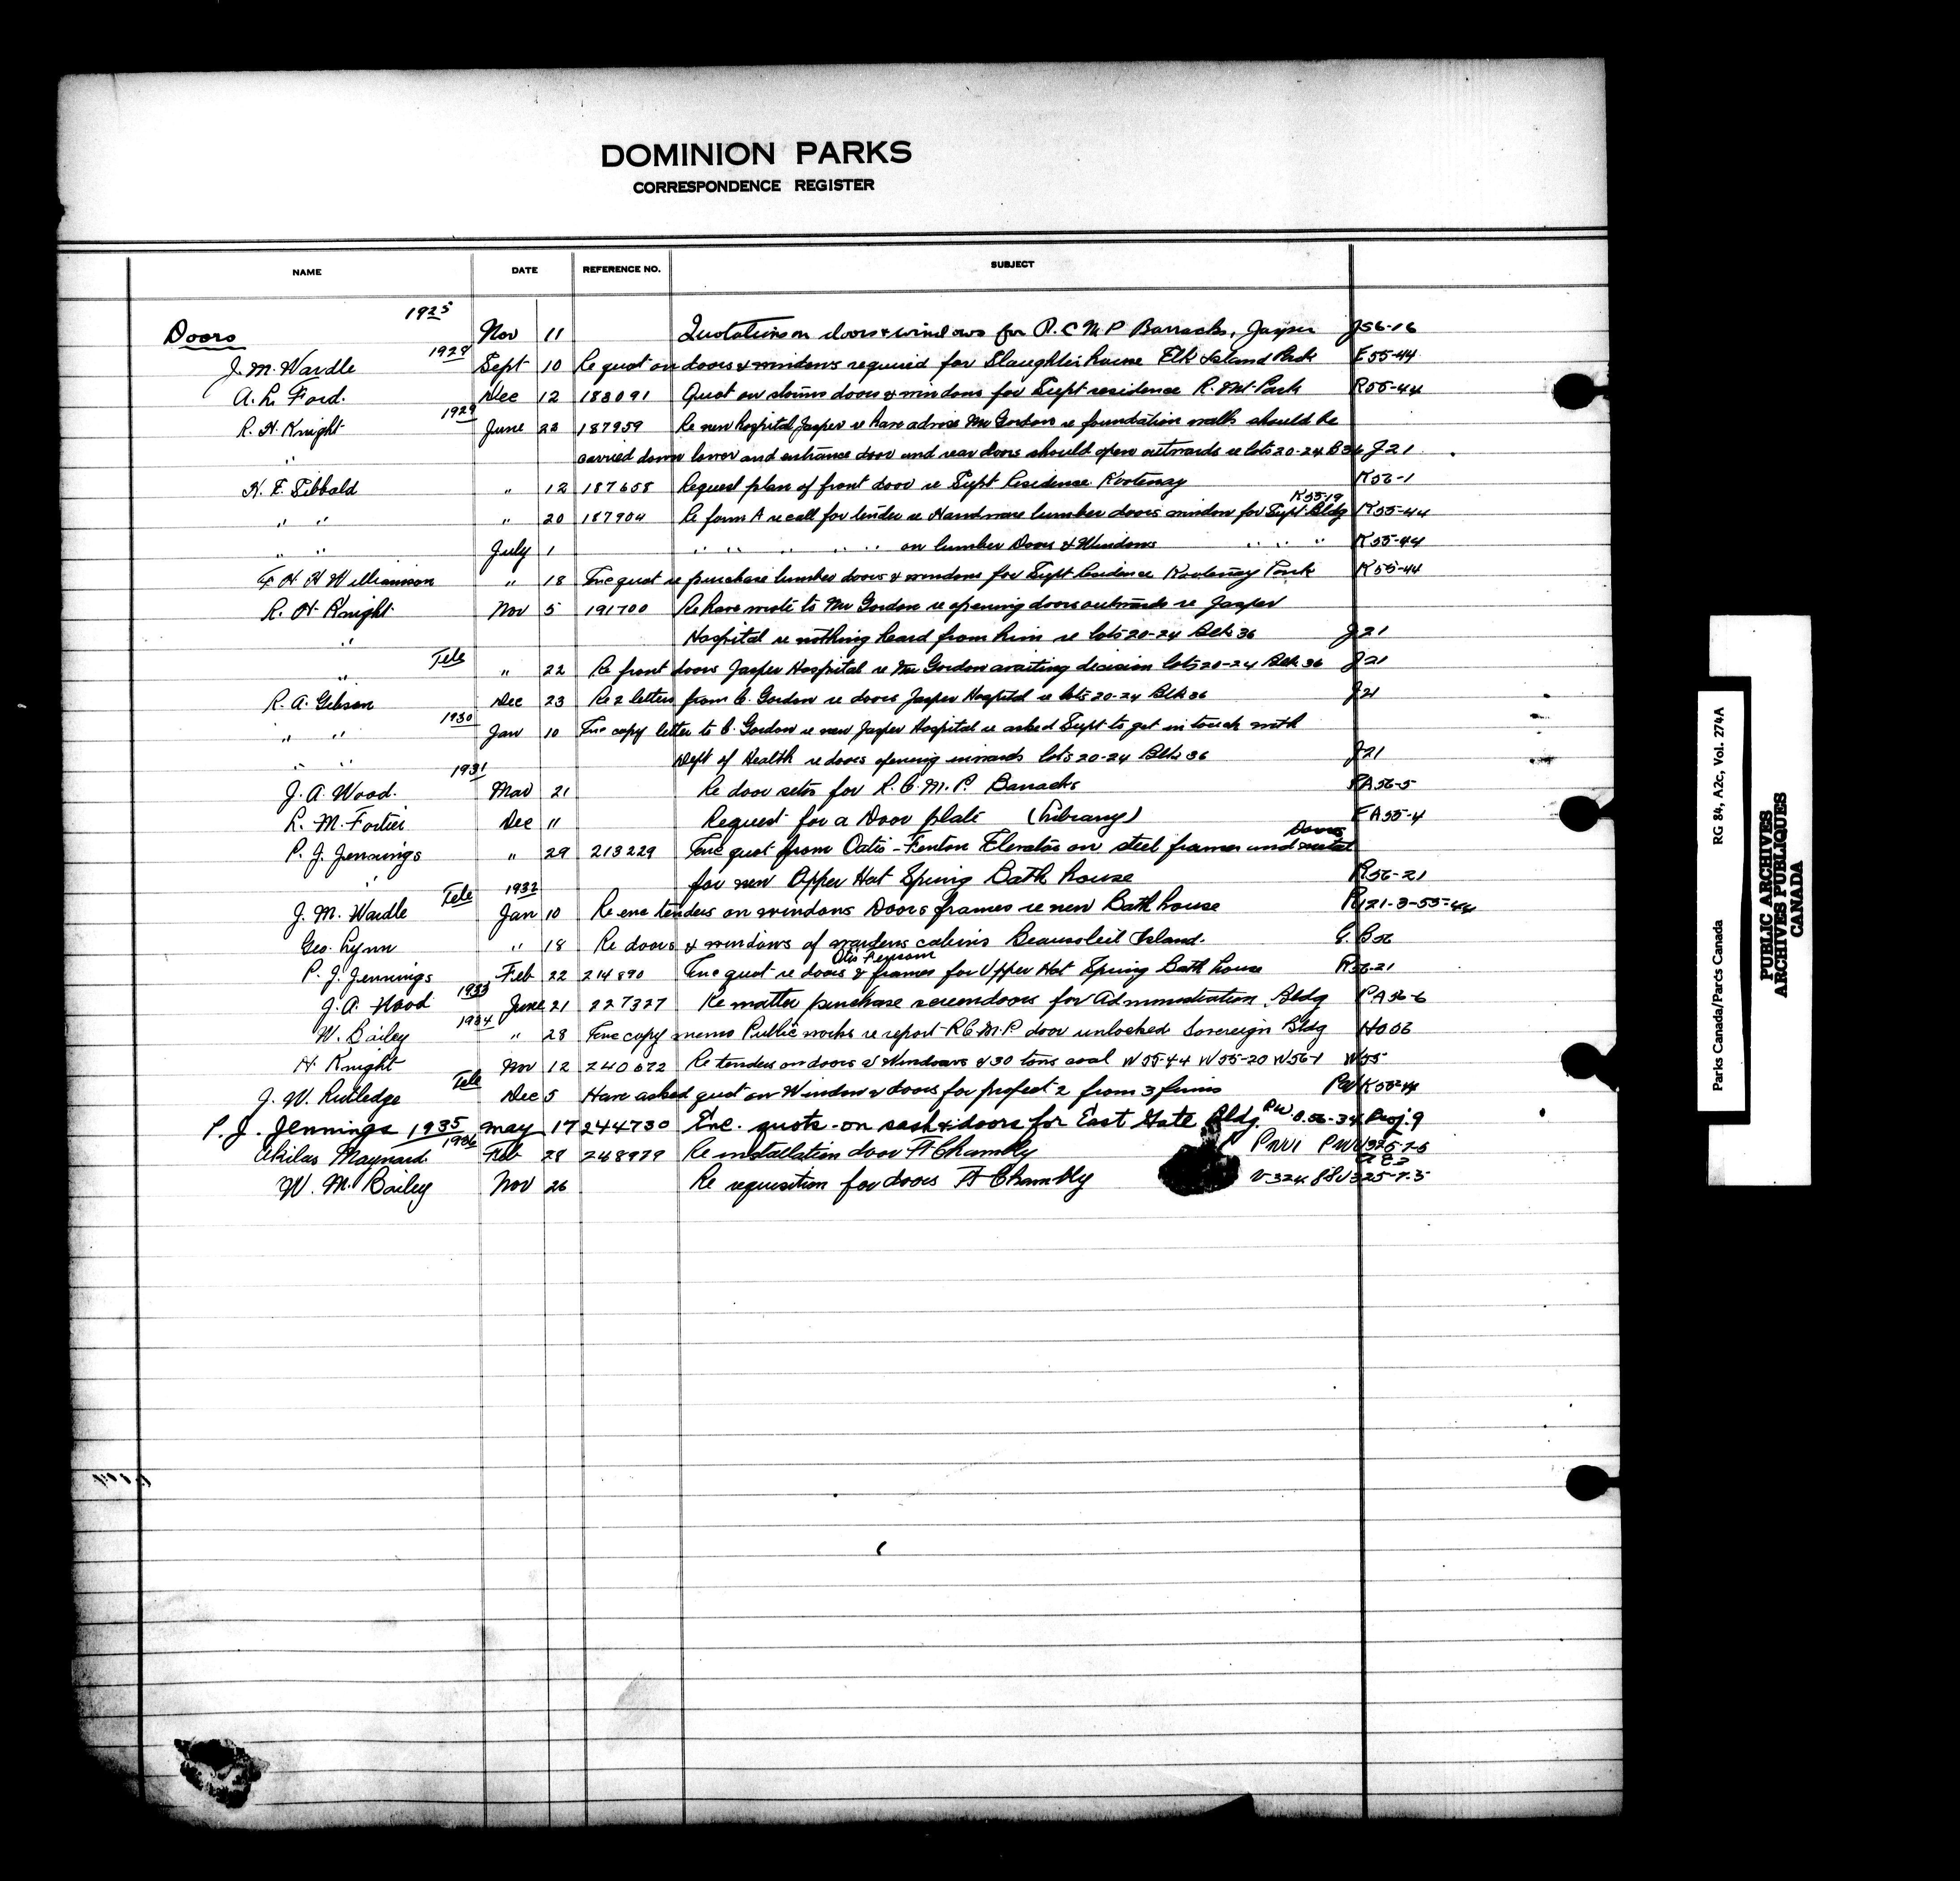 DOMINION PARKS
CORRESPONDENCE REGISTER
NAME DATE REFERENCE NO. SUBJECT
1925
Doors Nov 11 Quotations on doors & windows for R.C.M.P Barracks, Jasper J56-16
1928
J. M. Wardle Sept 10 Re quot on doors & windows required for Slaughter house Elk Island Park E55-44
A. L. Ford. Dec 12 183091 Quot on storms doors & windows for Supt residence R. Mt. Park R55-44
1929
R. H. Knight June 22 187959 Re new hospital Jasper re have advise Mr Gordon re foundation walls should be
" carried down lower and entrance door and rear doors should open outwards re lots 20-24 B36 J21
H. E. Sibbald " 12 187658 Request plan of front door re Supt Residence Kootenay K56-1
K55-19
" " " 20 187904 Re form A re call for tender re Hardware lumber doors window for Supt Bldg K55-44
" " July 1 " " " " " on lumber Doors & Windows " " " K55-44
F H H Williamson " 18 Enc quot re purchase lumber doors & windows for Supt Residence Kootenay Park K55-44
R. H. Knight Nov 5 191700 Re have wrote to Mr Gordon re opening doors outwards re Jasper
" Hospital re nothing heard from him re lots 20-24 Blk 36 J21
Tele
" " 22 Re front doors Jasper Hospital re Mr Gordon awaiting decision lots 20-24 Blk 36 J21
R. A. Gibson Dec 23 Re 2 letters from C. Gordon re doors Jasper Hospital re lots 20-24 Blk 36 J21
1930
" " Jan 10 Enc copy letter to C. Gordon re new Jasper Hospital re asked Supt to get in touch with
" " Dept of Health re doors opening inwards lots 20-24 Blk 36 J21
1931
J. A. Wood. Mar 21 Re door sets for R.C.M.P. Barracks PA56-5
L. M. Fortier Dec 11 Request for a Door plate (Library) FA55-4
Doors
P. J. Jennings " 29 213229 Enc quot from Oatis-Fenton Elevator on steel frames and metal
" for new Upper Hot Spring Bath house R56-21
Tele 1932
J. M. Wardle Jan 10 Re enc tenders on windows Doors frames re new Bath house R121-3-55-44
Geo. Lynn " 18 Re doors & windows of wardens cabins Beausoleil Island. G. B56
Otis Fensom
P. J. Jennings Feb 22 214890 Enc quot re doors & frames for Upper Hot Spring Bath house R56-21
1933
J. A. Wood June 21 227327 Re matter purchase screen doors for Administration Bldg PA56-6
1934
W. Bailey " 28 Enc copy memo Public works re report R.C.M.P door unlocked Sovereign Bldg H006
H Knight Nov 12 240672 Re tenders on doors & Windows & 30 tons coal W55-44 W55-20 W56-1 W55
Tele
J. W. Rutledge Dec 5 Have asked quot on Window & doors for project 2 from 3 firms PWK55-44
P. J. Jennings 1935 May 17 244730 Enc. quots. on sash & doors for East Gate Bldg PW. B.56-34 Proj. 9
1936
Akilas Maynard Feb 28 248979 Re installation door Ft Chambly
W. M. Bailey Nov 26 Re requisition for doors Ft Chambly
RG 84, A2c, Vol. 274A
Parks Canada/Parcs Canada
PUBLIC ARCHIVES
ARCHIVES PUBLIQUES
CANADA